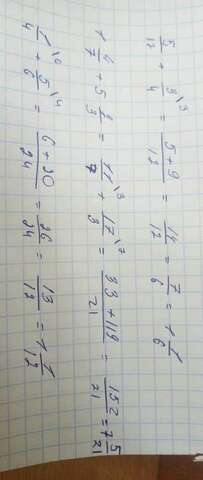 5/12 + 3/4 \3 = (5+9)/12 = 14/12 = 7/6 = 1 1/6
1 4/7 + 5 2/3 = 11/7 \3 + 17/3 \7 = (33+119)/21 = 152/21 = 7 5/21
1/4 \6 + 5/6 \4 = (6+20)/24 = 26/24 = 13/12 = 1 1/12